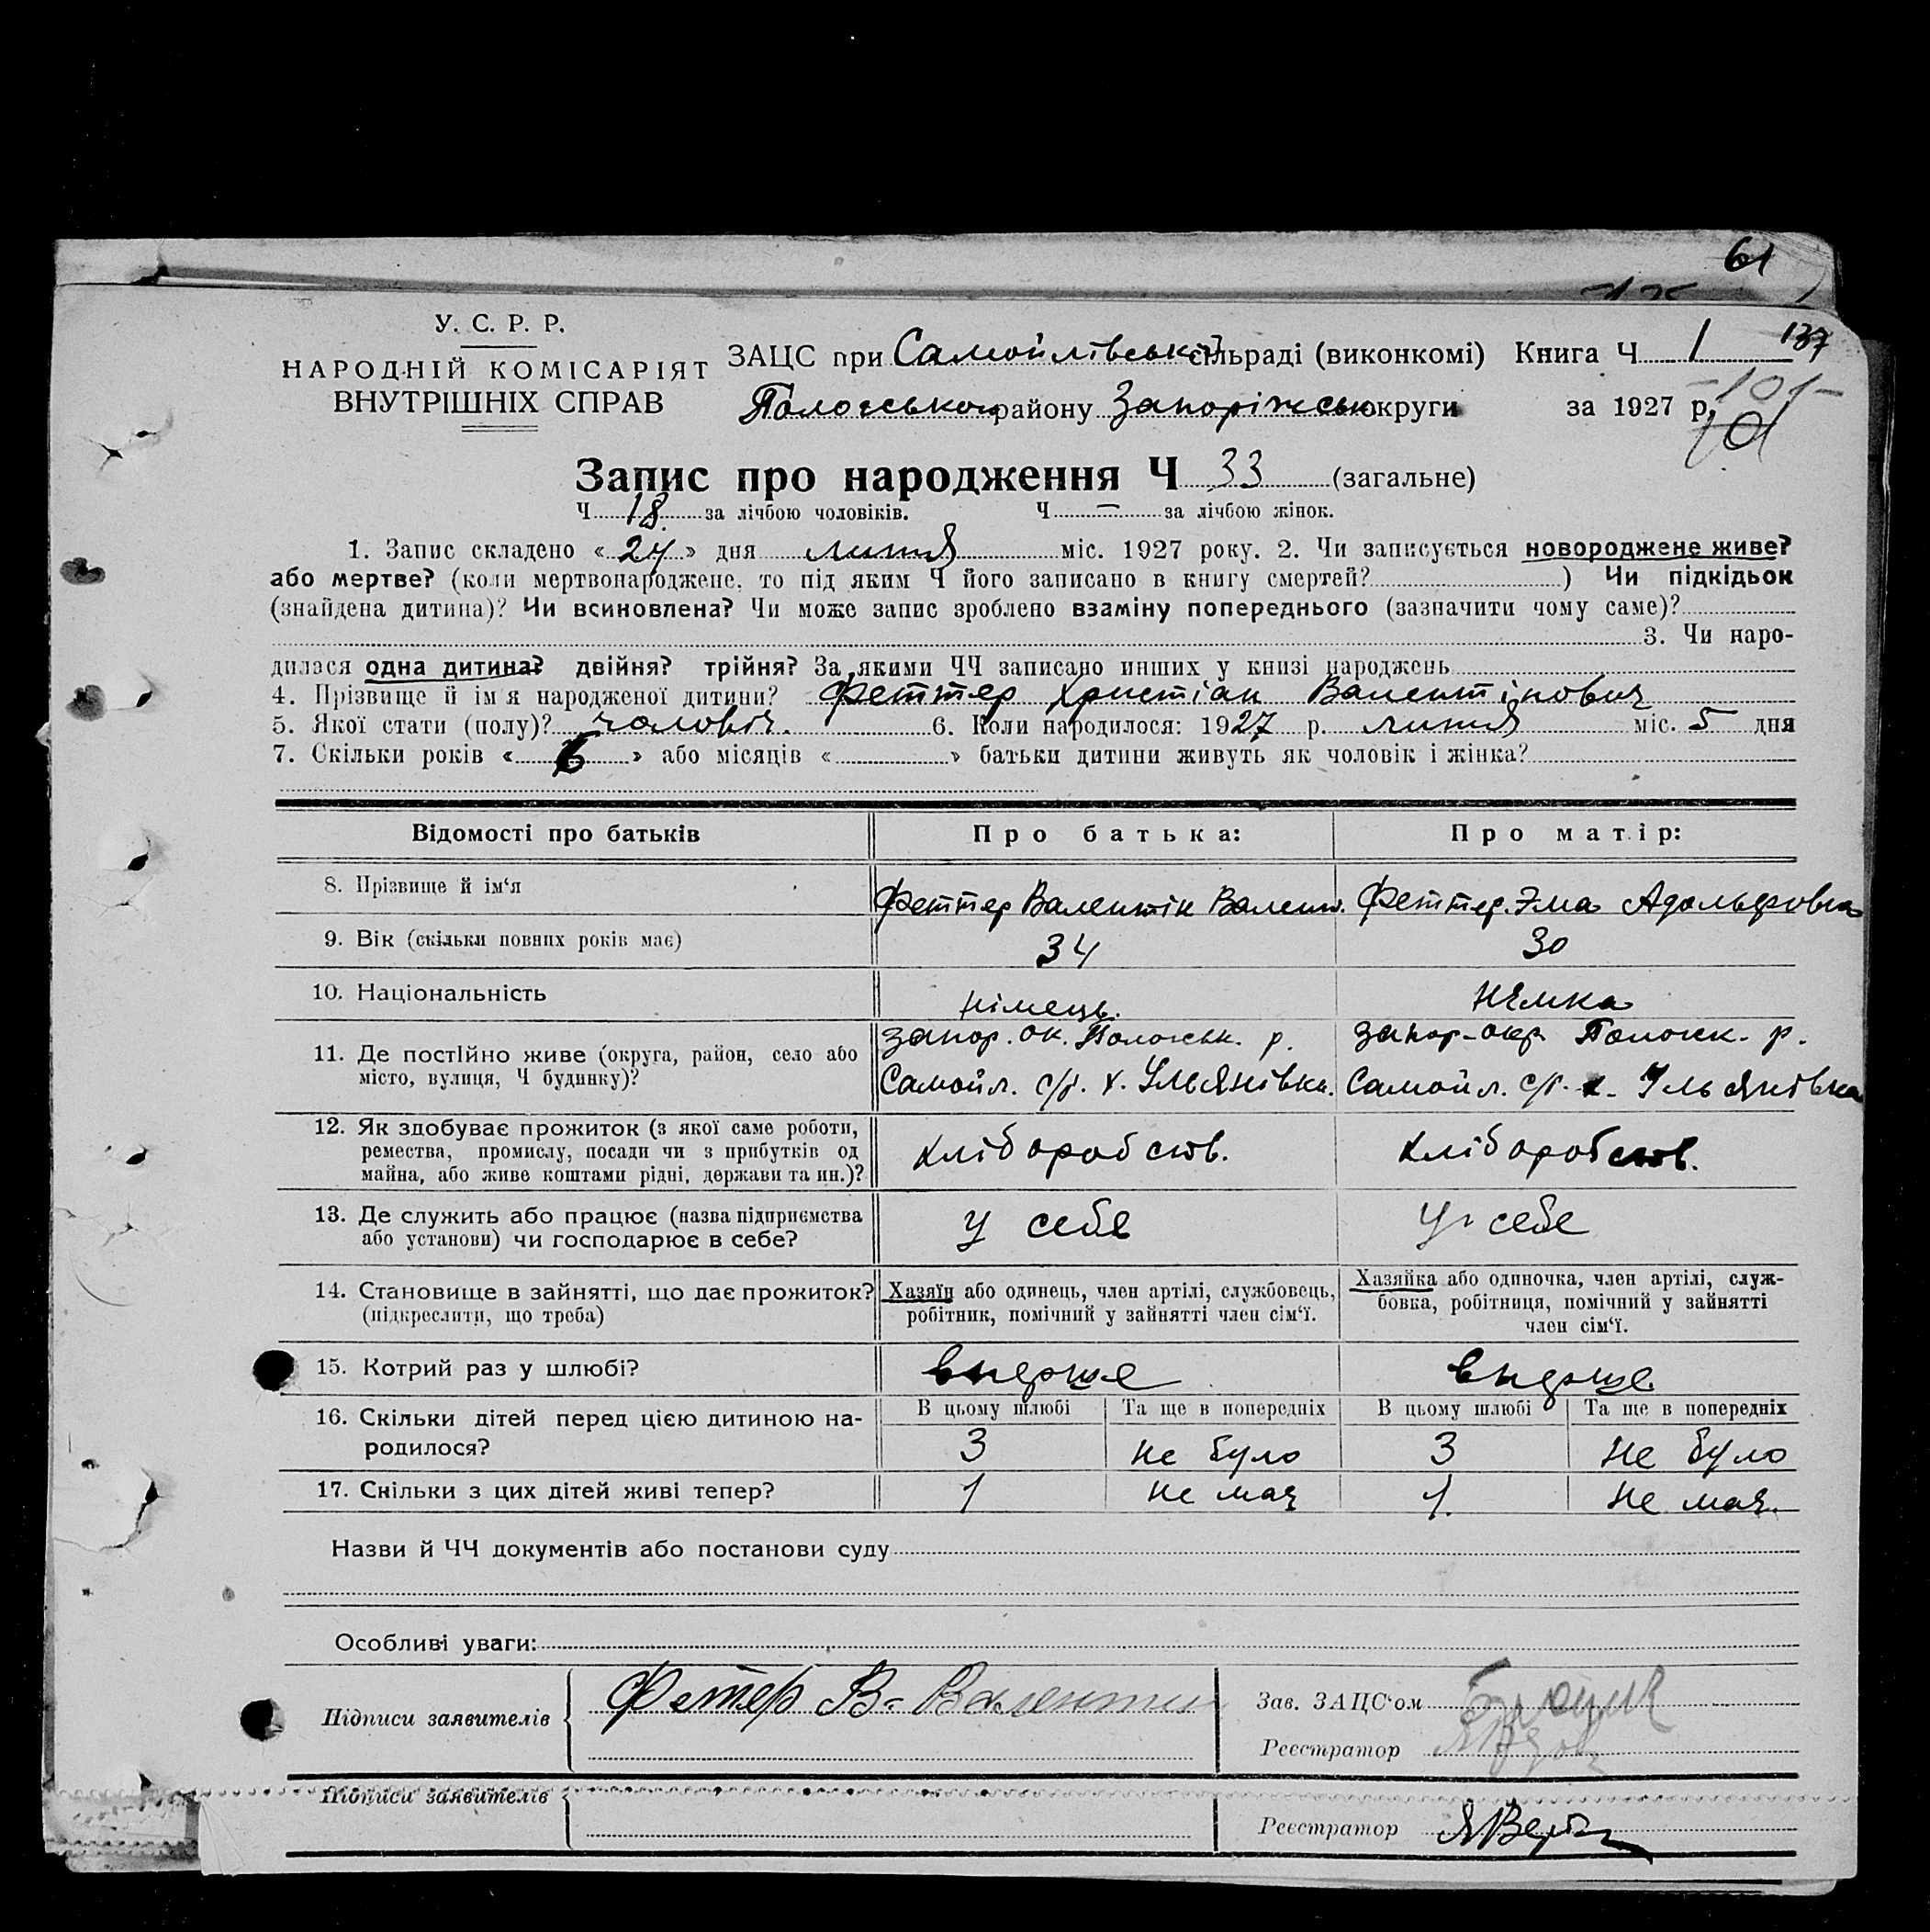 61
У. С. Р. Р.
НАРОДНІЙ КОМІСАРІЯТ
ВНУТРІШНІХ СПРАВ
ЗАЦС при Самойлівській сільраді (виконкомі) Книга Ч 1 137
Пологського району Запоріжськ округи за 1927 р. -101-
Запис про народження Ч 33 (загальне)
Ч 18 за лічбою чоловіків. Ч — за лічбою жінок.
1. Запис складено « 24 » дня липня міс. 1927 року. 2. Чи записується новороджене живе?
або мертве? (коли мертвонароджене, то під яким Ч його записано в книгу смертей? ) Чи підкідьок
(знайдена дитина)? Чи всиновлена? Чи може запис зроблено взаміну попереднього (зазначити чому саме)?
3. Чи наро-
дилася одна дитина? двійня? трійня? За якими ЧЧ записано инших у книзі народжень
4. Прізвище й ім'я народженої дитини? Феттер Христіан Валентінович
5. Якої стати (полу)? чоловіч. 6. Коли народилося: 1927 р. липня міс. 5 дня
7. Скільки років « 6 » або місяців « » батьки дитини живуть як чоловік і жінка?
Відомості про батьків Про батька: Про матір:
8. Прізвище й ім'я Феттер Валентін Валент. Феттер Эма Адольфовна
9. Вік (скільки повних років має) 34 30
10. Національність німець. нємка
11. Де постійно живе (округа, район, село або запор. ок. Пологськ. р. запор-окр. Пологск. р.
місто, вулиця, Ч будинку)? Самойл. с/р. х. Ульянівка. Самойл. с/р. х. Ульянівка
12. Як здобуває прожиток (з якої саме роботи,
ремества, промислу, посади чи з прибутків од хліборобств. хліборобств.
майна, або живе коштами рідні, держави та ин.)?
13. Де служить або працює (назва підприємства у себе у себе
або установи) чи господарює в себе?
14. Становище в зайнятті, що дає прожиток? Хазяїн або одинець, член артілі, службовець, Хазяйка або одиночка, член артілі, служ-
(підкреслити, що треба) робітник, помічний у зайнятті член сім'ї. бовка, робітниця, помічний у зайнятті
член сім'ї.
15. Котрий раз у шлюбі? вперше вперше
16. Скільки дітей перед цією дитиною на- В цьому шлюбі Та ще в попередніх В цьому шлюбі Та ще в попередніх
родилося? 3 не було 3 не було
17. Скільки з цих дітей живі тепер? 1 не має 1. не має.
Назви й ЧЧ документів або постанови суду
Особливі уваги:
Підписи заявителів Фетер В. Валентин Зав. ЗАЦС'ом
Реєстратор
Підписи заявителів
Реєстратор